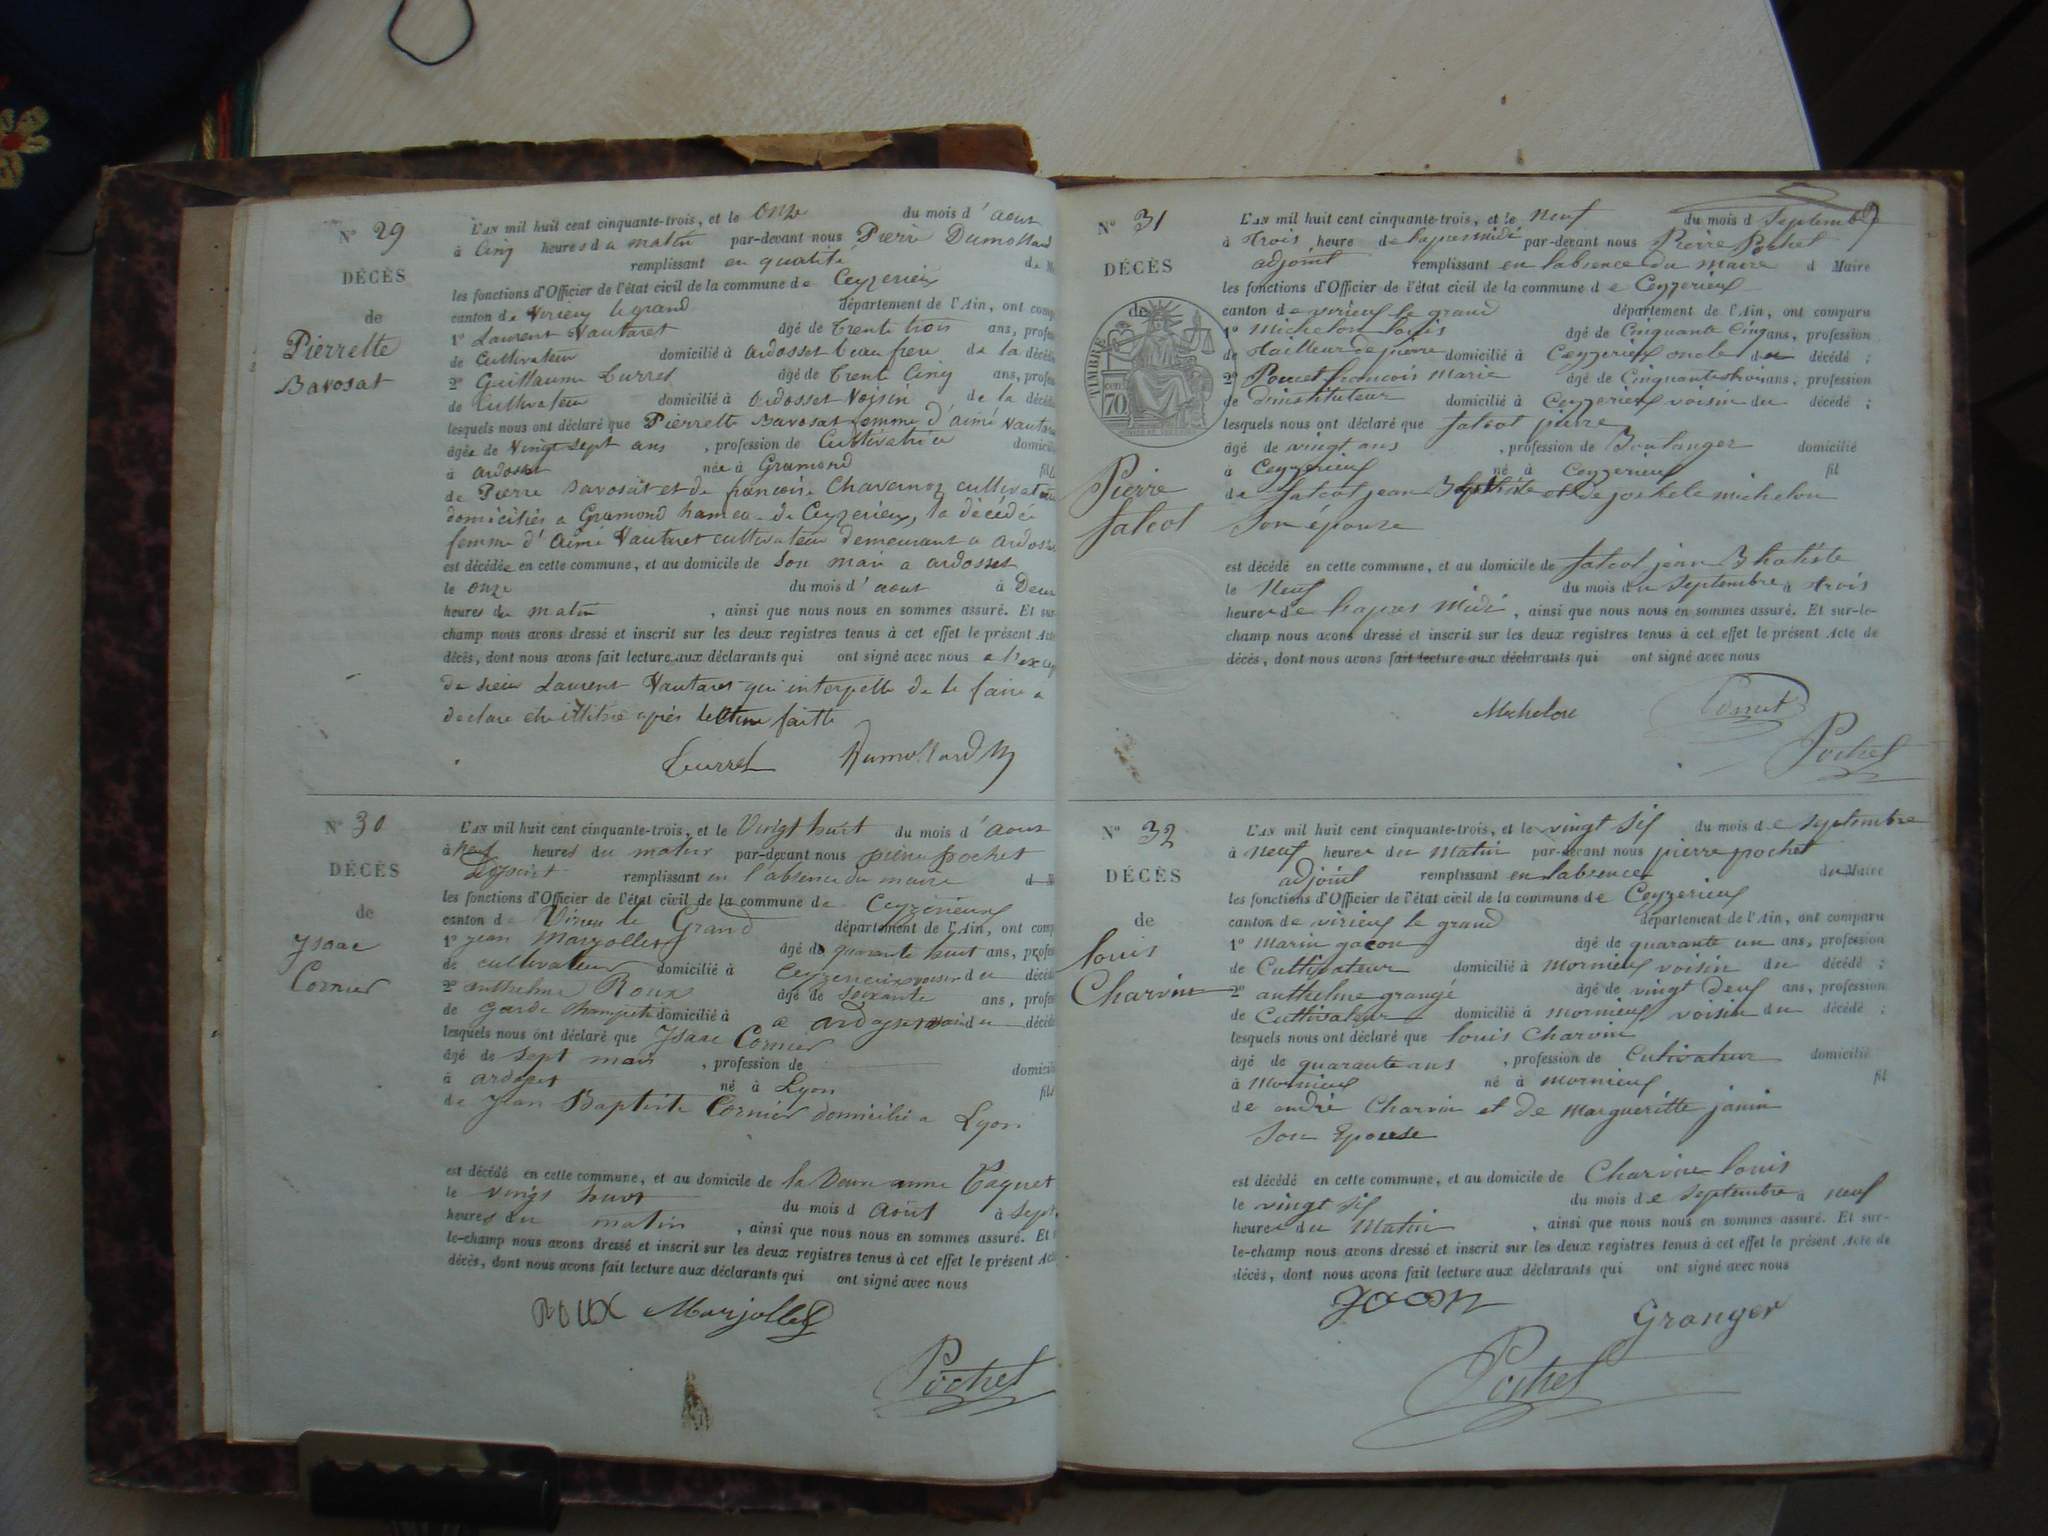 N° 29
DÉCÈS
de
Pierrette
Bavosat
L'AN mil huit cent cinquante-trois, et le onze du mois d'aout
à Cinq heures du matin par-devant nous Pierre Dumollard
remplissant en qualité de M
les fonctions d'Officier de l'état civil de la commune de Ceyzerieux
canton de Virieu legrand département de l'Ain, ont comp
1° Laurent Vautaret âgé de trente trois ans, profes
de Cultivateur domicilié à ardosset beau frere de la décédé
2° Guillaume Turrel âgé de trente Cinq ans, profes
de Cultivateur domicilié à ardosset Voisin de la décédé
lesquels nous ont déclaré que Pierrette Bavosat femme d'aimé Vautaret
âgée de Vingt sept ans , profession de Cultivatrice domicilié
à ardosset née à Gramond fille
de Pierre Bavosat et de françoise Chavernoz cultivateurs
domiciliés a Gramond hameau de Ceyzerieux, la décédée
femme d'Aimé Vautaret cultivateur demeurant a ardosset
est décédée en cette commune, et au domicile de son mari a ardosset
le onze du mois d'aout à Deux
heures du matin , ainsi que nous nous en sommes assuré. Et sur-
champ nous avons dressé et inscrit sur les deux registres tenus à cet effet le présent Acte
décès, dont nous avons fait lecture aux déclarants qui ont signé avec nous a l'excep
de sieur Laurent Vautaret qui interpellé de le faire a
declaré etre illitré après lecture faitte
Turrel Dumollard M
N° 30
DÉCÈS
de
Isaac
Cornier
L'AN mil huit cent cinquante-trois, et le Vingt huit du mois d'aout
à neuf heures du matin par-devant nous pierre pochet
adjoint remplissant en l'absence du maire d M
les fonctions d'Officier de l'état civil de la commune de Ceyzerieux
canton de Virieu le Grand département de l'Ain, ont comp
1° jean Marjollet âgé de quarante huit ans, profes
de cultivateur domicilié à Ceyzerieux voisin du décédé
2° anthelme Roux âgé de soixante ans, profes
de garde champetre domicilié à a ardosset voisin du décédé
lesquels nous ont déclaré que Isaac Cornier
âgé de sept mois , profession de domicilié
à ardosset né à Lyon fils
de Jean Baptiste Cornier domicilié a Lyon
est décédé en cette commune, et au domicile de la Veuve anne Paquet
le vingt huit du mois d aout à sept
heures du matin , ainsi que nous nous en sommes assuré. Et
le-champ nous avons dressé et inscrit sur les deux registres tenus à cet effet le présent Acte
décès, dont nous avons fait lecture aux déclarants qui ont signé avec nous
ROUX Marjollet
Pochet
N° 31
DÉCÈS
de
TIMBRE
70
Pierre
falcot
L'AN mil huit cent cinquante-trois, et le neuf du mois d septembre
à trois heure de lapresmidi par-devant nous Pierre Pochet
adjoint remplissant en labsence du maire d Maire
les fonctions d'Officier de l'état civil de la commune de Ceyzerieux
canton de virieux le grand département de l'Ain, ont comparu
1° Michelon louis âgé de Cinquante Cinq ans, profession
de tailleur de pierre domicilié à Ceyzerieux oncle du décédé ;
2° Poncet francois Marie âgé de Cinquantetrois ans, profession
de dinstituteur domicilié à Ceyzerieux voisin du décédé ;
lesquels nous ont déclaré que falcot pierre
âgé de vingt ans , profession de Boulanger domicilié
à Ceyzerieux né à Ceyzerieux fil
de falcot jean Bhatiste et de joshele michelon
son épouze
est décédé en cette commune, et au domicile de falcot jean Bhatiste
le Neuf du mois du Septembre à trois
heure de lapres Midi , ainsi que nous nous en sommes assuré. Et sur-le-
champ nous avons dressé et inscrit sur les deux registres tenus à cet effet le présent Acte de
décès, dont nous avons fait lecture aux déclarants qui ont signé avec nous
Michelon Poncet
Pochet
N° 32
DÉCÈS
de
louis
Charvin
L'AN mil huit cent cinquante-trois, et le vingt sif du mois de septembre
à neuf heure du Matin par-devant nous pierre pochet
adjoint remplissant en labsence du Maire
les fonctions d'Officier de l'état civil de la commune de Ceyzerieux
canton de virieux le grand département de l'Ain, ont comparu
1° Marin gacon âgé de quarante un ans, profession
de Cultivateur domicilié à Mornieux voisin du décédé ;
2° anthelme grangé âgé de vingt deuf ans, profession
de Cultivateur domicilié à mornieux voisin du décédé ;
lesquels nous ont déclaré que louis Charvin
âgé de quarante ans , profession de Cultivateur domicilié
à Mornieux né à mornieux fil
de andré Charvin et de Margueritte janin
son Epouse
est décédé en cette commune, et au domicile de Charvin louis
le vingt sif du mois de septembre à neuf
heure du Matin , ainsi que nous nous en sommes assuré. Et sur-
le-champ nous avons dressé et inscrit sur les deux registres tenus à cet effet le présent Acte de
décès, dont nous avons fait lecture aux déclarants qui ont signé avec nous
gacon Granger
Pochet